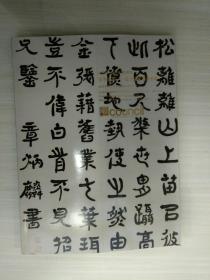 松離離山上苗㠯彼
此百尺條世胄躡高
下僚地勢使之然由
金張藉舊業七葉珥
豈不偉白首不見招
兄鑒 章炳麟書
council